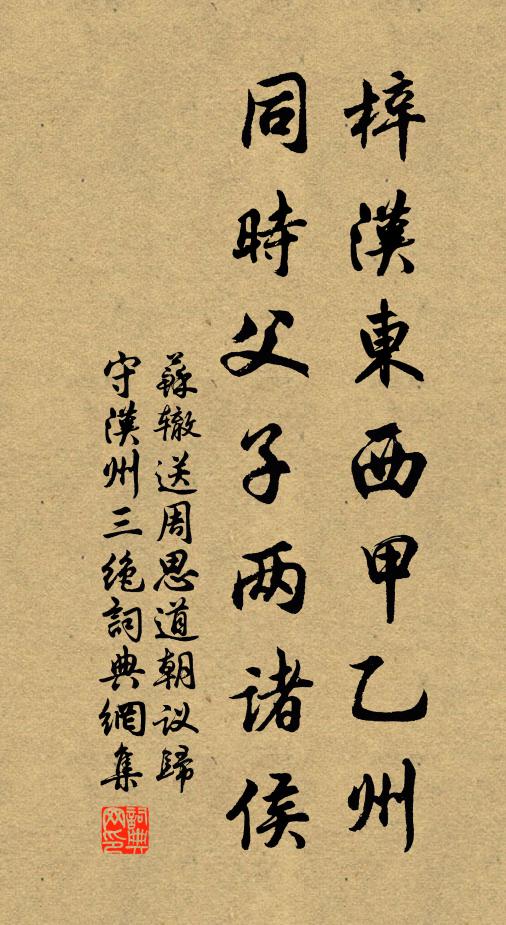 梓漢東西甲乙州
同時父子兩諸侯
蘇轍送周思道朝议歸
守漢州三绝詞典網集
詞典網印